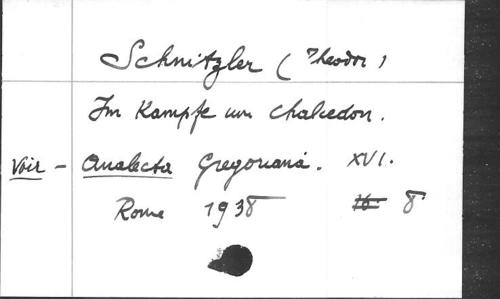 Schnitzler (Theodor)
Im Kampfe um Chalcedon.
Voir - Analecta Gregoriana. XVI.
Rome 1938 16. 8